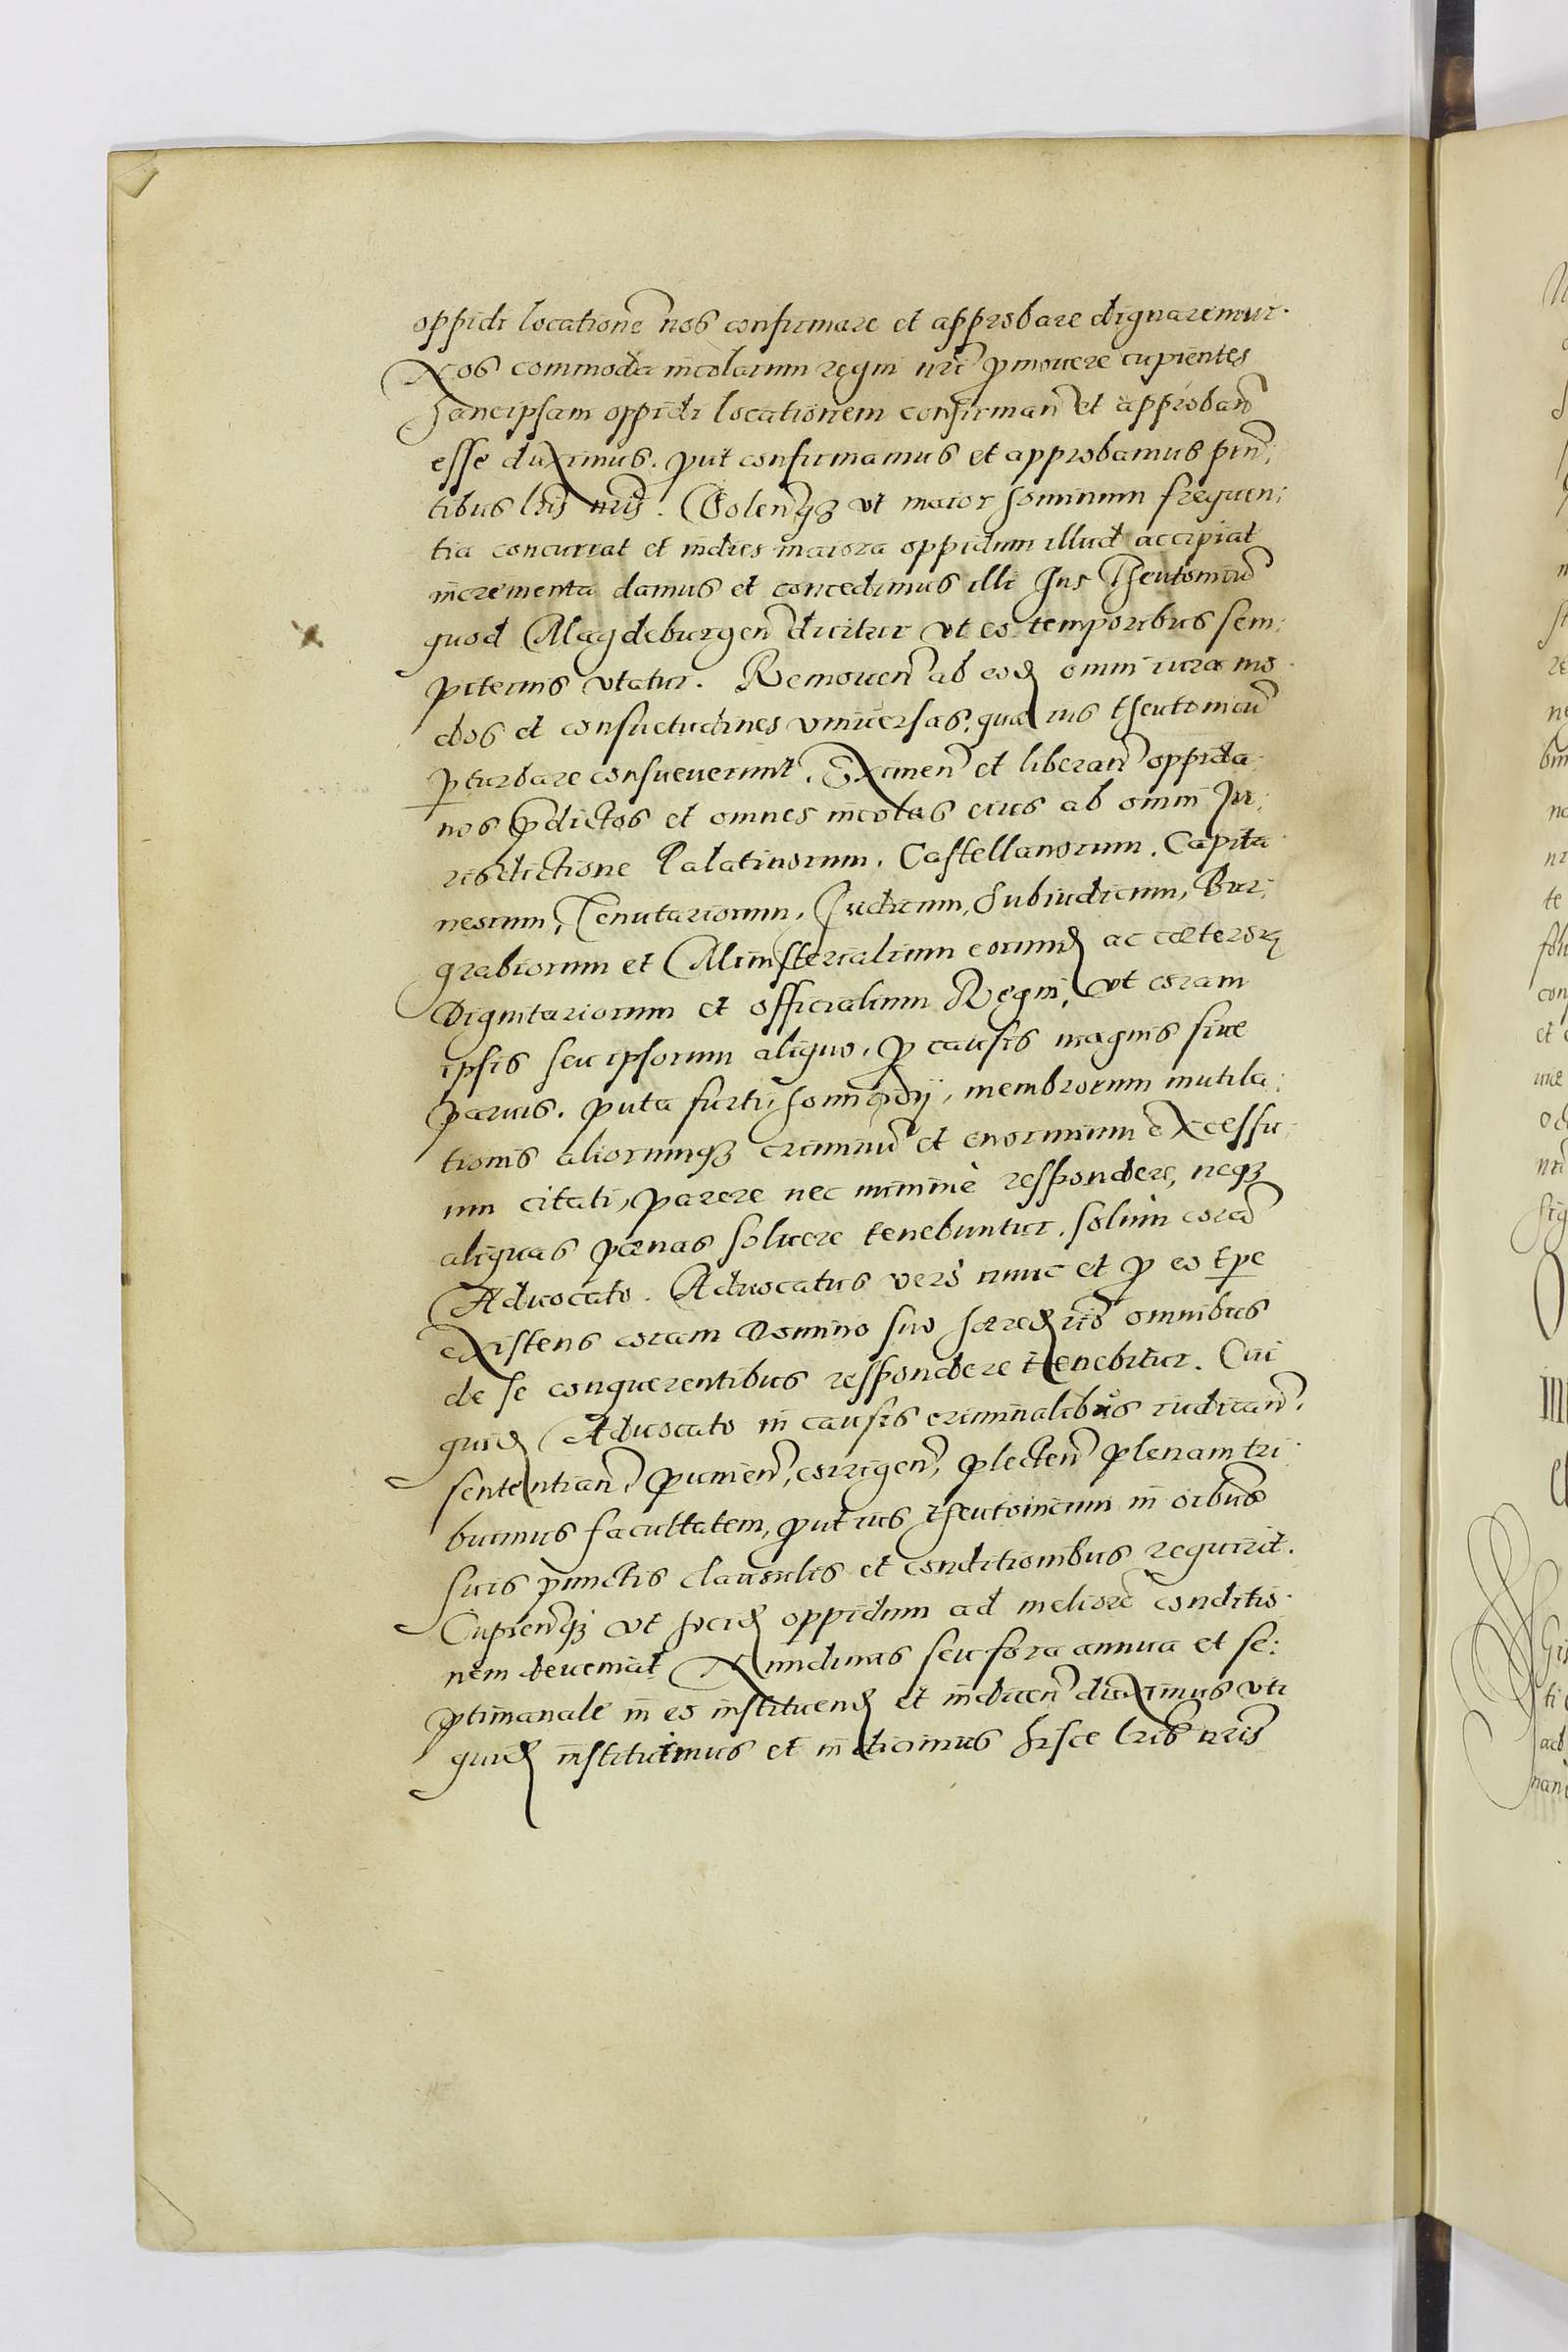 oppidi locationẽ nos confirmare et approbare dignaremur.
Nos commoda incolarum regni nrĩ ꝓmouere cupientes
hancipsam oppidi locationem confirman̄ et approban̄
esse duximus. ꝓut confirmamus et approbamus pn̄:
tibus lris nris. Volen̄qꝫ vt maior hominum frequen:
tia concurrat et indies maiora oppidum illud accipiat
incrementa damus et concedimus illi Jus Theutonicū
quod Magdeburgen̄ dicitur vt eo temporibus sem:
piternis vtatur. Remouen̄ ab eod omnĩ iura mo:
dos et consuetudines vniuersas, quæ ius theutonicū
ꝑturbare consueuerunt. Eximen̄ et liberan̄ oppida:
nos p̄dictos et omnes incolas eius ab omni Ju:
risdictione Palatinorum, Castellanorum, Capita
neorum, Tenutariorum, Judicum, Subiudicum, Bur:
grabiorum et Ministerialium eorumd ac cæterorꝝ
Dignitariorum et officialium Regni, vt coram
ipsis seu ipsorum aliquo, ꝓ causis magnis siue
paruis. puta furti, homicidij, membrorum mutila:
tionis aliorumqꝫ criminū et enormium excessu:
um citati, parere nec minimè respondere, neqꝫ
aliquas pœnas soluere tenebuntur, solùm corā
Aduocato. Aduocatus verò nunc et ꝓ eo tp̄e
existens coram Domino suo hæredrio omnibus
de se conquerentibus respondere tenebitur. Cui
quid Aduocato in causis criminalibus iudican̄,
sententian̄, punien̄, corrigen̄, plecten̄ plenam tri:
buimus facultatem, ꝓut ius theutonicum in oĩbus
suis punctis clausulis et conditionibus requirit.
Cupien̄qꝫ vt hocid oppidum ad meliorē conditio:
nem deueniat Nundinas seu fora annua et se:
ptimanale in eo instituend et indicen̄ duximus vti
quid instituimus et indicimus hisce lris nris